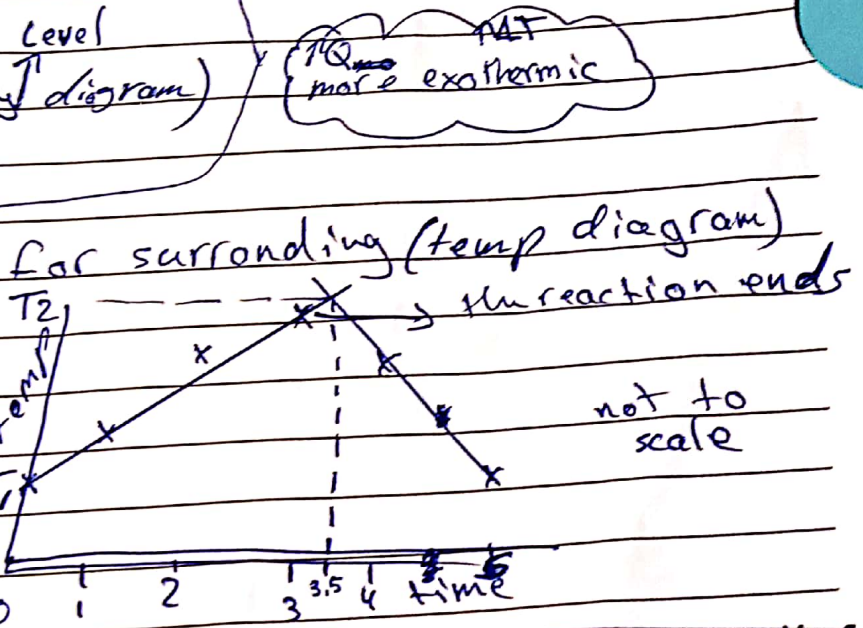 Level
diagram)
↑Q ↑ΔT
more exothermic
for surronding (temp diagram)
T2
the reaction ends
not to
scale
0 1 2 3 3.5 4 time